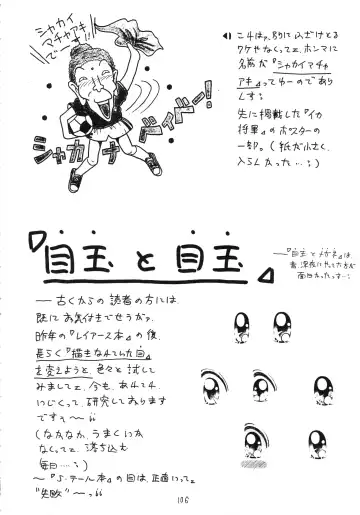 シャカイ
マチャアキ
でーす!!
シャカナ
ディバー!
コ4はァ、別にふざけとる
ワケやなくってェ、ホンマに
名前が『シャカイマチャ
アキ』ってゆーのであり
んす。
先に掲載した『イカ
将軍』のポスターの
一部。(紙が小さく、
入らんかった…。)
『目玉と目玉』
—『目玉とメガネ』は、
昔、深夜にやしてた方が
面白かったっすー!
— 古くからの読者の方には、
既にお気付きでせうがァ、
昨年の『レイアース本』の後、
長らく『描きなれていた目』
を変えようと、色々と試して
みましてェ、今も、あ4て4、
いじくって、研究しております
ですゥ〜
(なかなか、うまくいか
なくってェ、落ち込む
毎日……。)
〜『S・テール本』の目は、正直いってェ
“失敗”〜
106